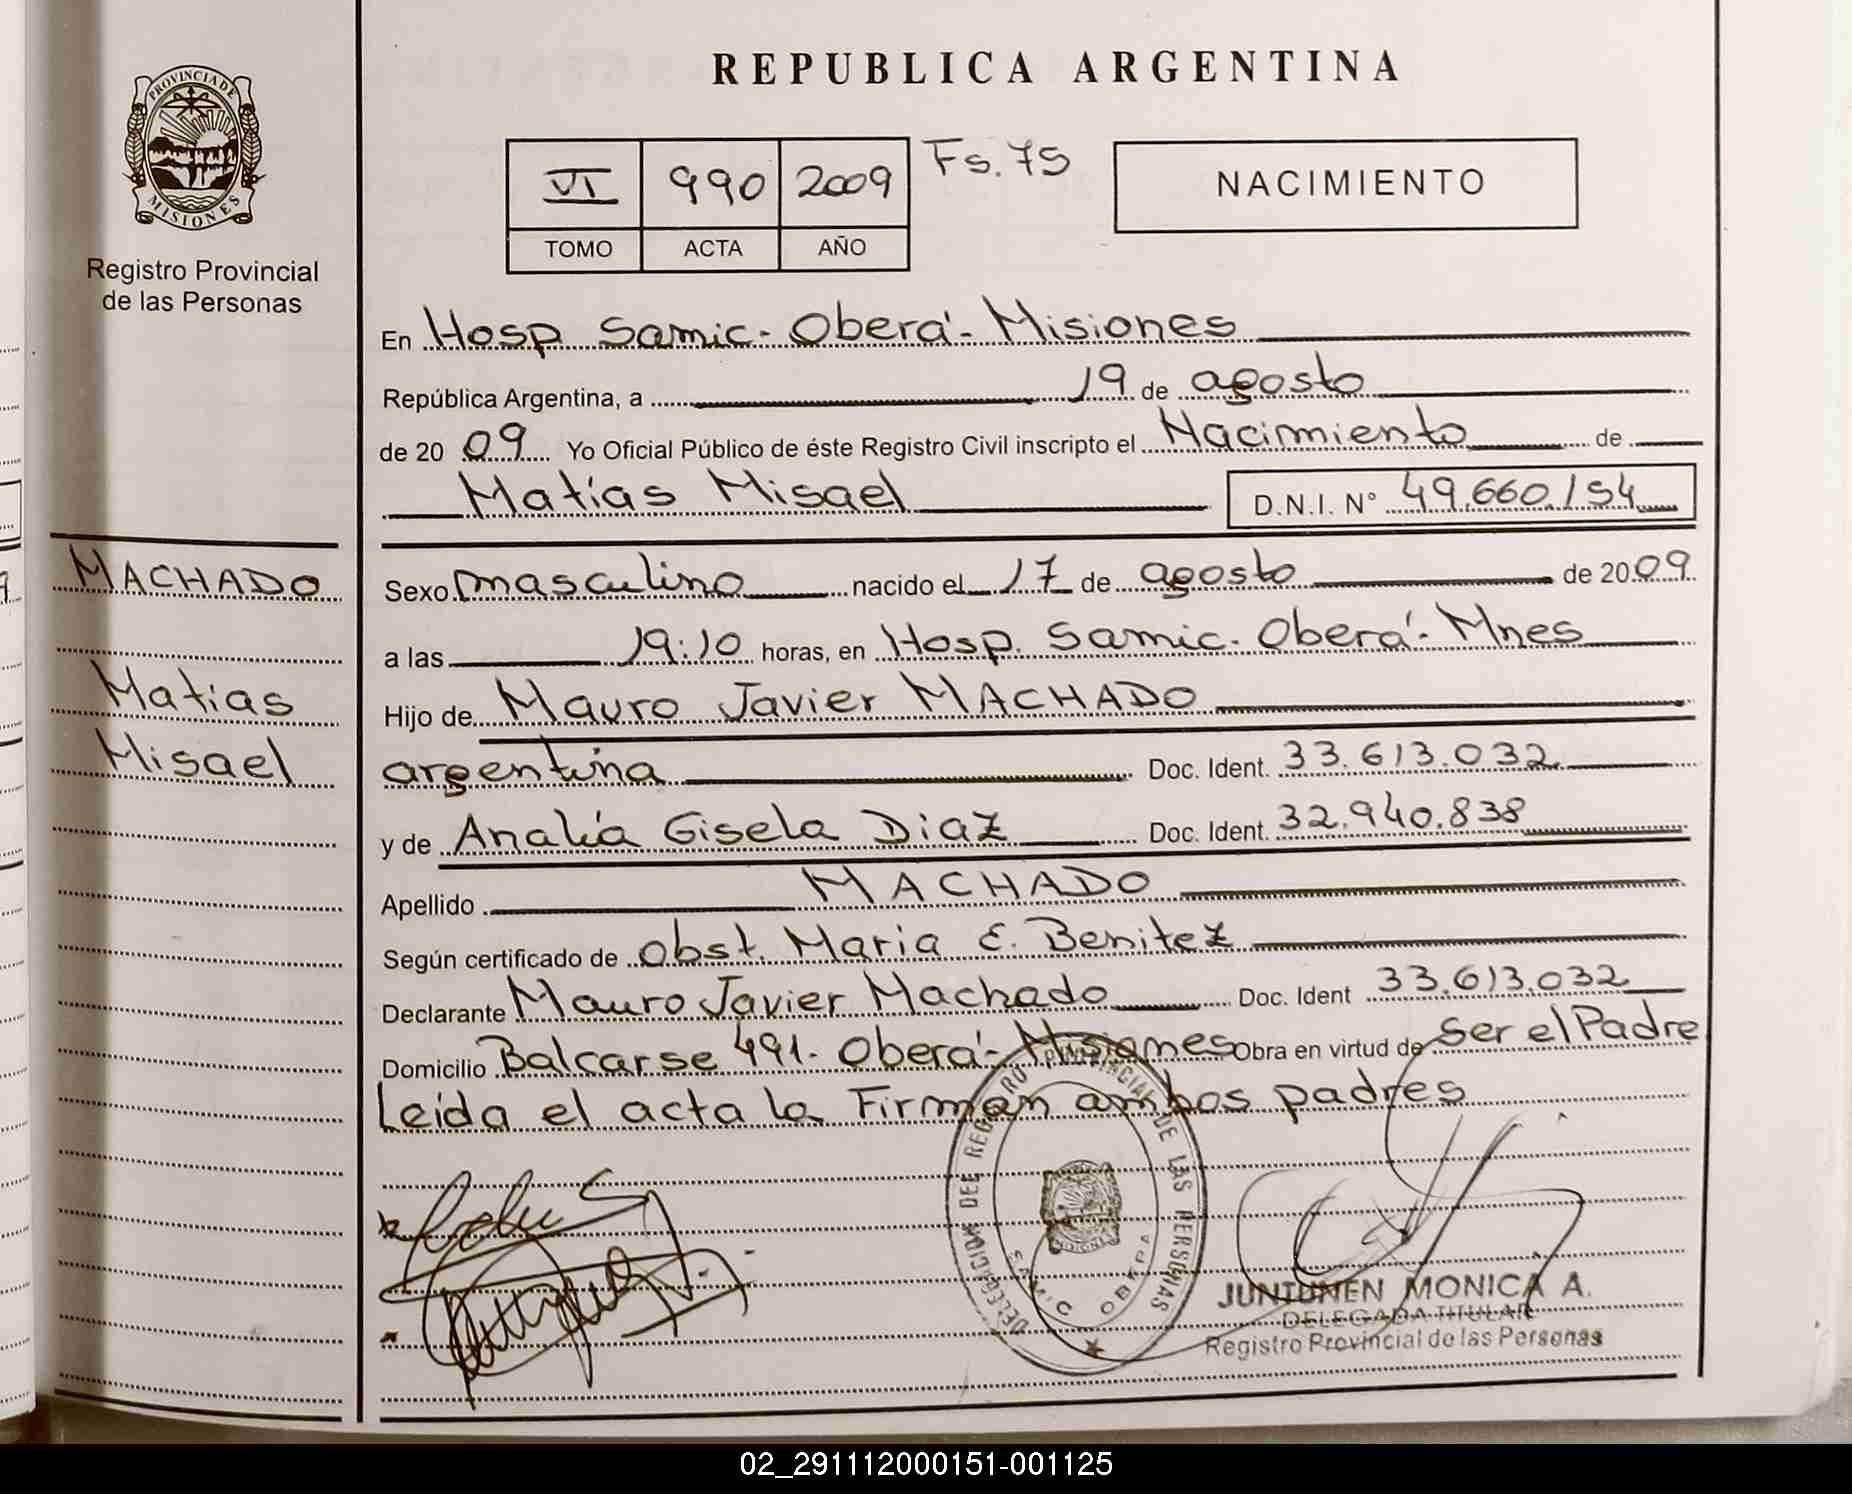 REPUBLICA ARGENTINA
PROVINCIA DE MISIONES
Registro Provincial
de las Personas
VI 990 2009 Fs. 75
TOMO ACTA AÑO
NACIMIENTO
En Hosp Samic - Oberá - Misiones
República Argentina, a 19 de agosto
de 20 09 Yo Oficial Público de éste Registro Civil inscripto el Nacimiento de
Matías Misael D.N.I. N° 49.660.154
MACHADO
Matias
Misael
Sexo masculino nacido el 17 de agosto de 20 09
a las 19:10 horas, en Hosp. Samic - Oberá - Mnes
Hijo de Mauro Javier MACHADO
argentina Doc. Ident. 33.613.032
y de Analía Gisela Diaz Doc. Ident. 32.940.838
Apellido MACHADO
Según certificado de Obst. Maria E. Benitez
Declarante Mauro Javier Machado Doc. Ident 33.613.032
Domicilio Balcarse 491 - Oberá - Misiones Obra en virtud de Ser el Padre
Leída el acta la Firman ambos padres
DELEGACION DEL REGISTRO PROVINCIAL DE LAS PERSONAS
SAMIC OBERA
MISIONES
JUNTUNEN MONICA A.
DELEGADA TITULAR
Registro Provincial de las Personas
02_291112000151-001125